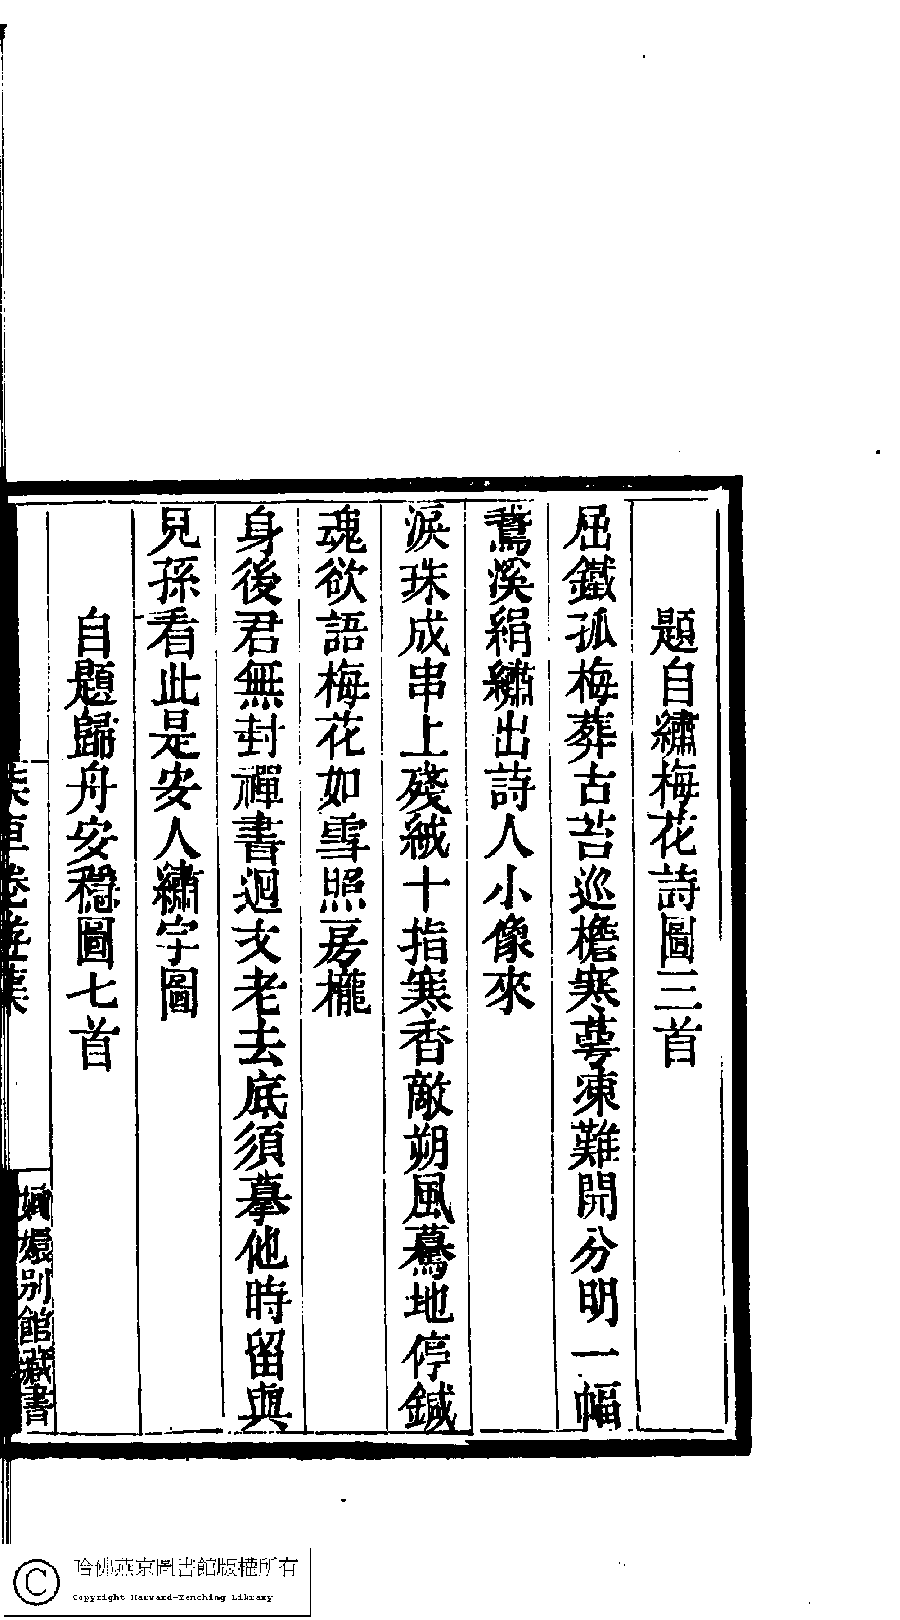 題自繡梅花詩圖三首
屈鐵孤梅葬古苔巡檐寒萼凍難開分明一幅
鵞溪絹繡出詩人小像來
淚珠成串上殘絨十指寒香敵朔風驀地停鍼
魂欲語梅花如雪照房櫳
身後君無封禪書迴文老去底須摹他時留與
兒孫看此是安人繡字圖
自題歸舟安穩圖七首
卷
集
嫏嬛別館藏書
哈佛燕京圖書館版權所有
Copyright Harvard-Yenching Library